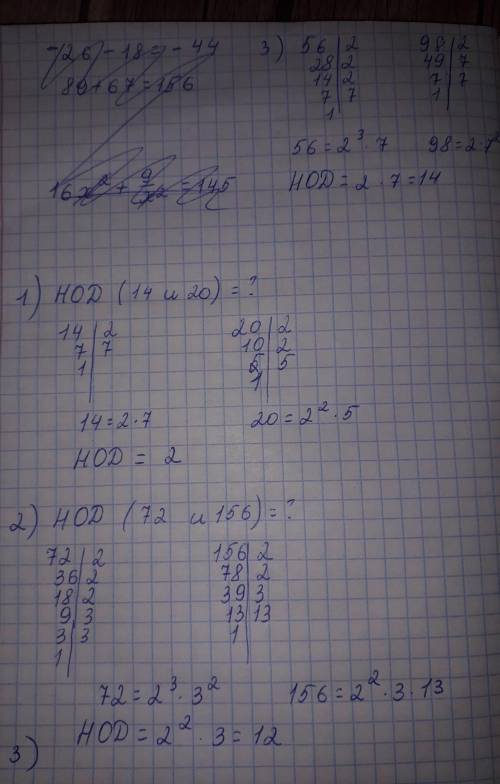 -26 - 18 = - 44
89 + 67 = 156
16x² + 9/x² = 145
3) 56 | 2
28 | 2
14 | 2
7 | 7
1 |
98 | 2
49 | 7
7 | 7
1 |
56 = 2³ · 7 98 = 2 · 7²
НОД = 2 · 7 = 14
1) НОД (14 и 20) = ?
14 | 2
7 | 7
1 |
20 | 2
10 | 2
5 | 5
1 |
14 = 2 · 7 20 = 2² · 5
НОД = 2
2) НОД (72 и 156) = ?
72 | 2
36 | 2
18 | 2
9 | 3
3 | 3
1 |
156 | 2
78 | 2
39 | 3
13 | 13
1 |
72 = 2³ · 3² 156 = 2² · 3 · 13
НОД = 2² · 3 = 12
3)